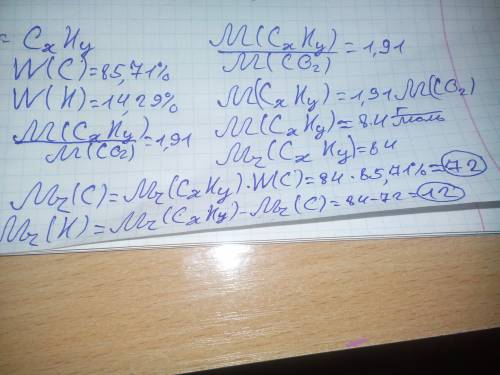 = CxHy
W(C)=85,71%
W(H)=14,29%
M(CxHy)/M(CO₂)=1,91
M(CxHy)/M(CO₂)=1,91
M(CxHy)=1,91 M(CO₂)
M(CxHy)=84 г/моль
Mr(CxHy)=84
Mr(C)=Mr(CxHy)·W(C)=84·85,71%=72
Mr(H)=Mr(CxHy)-Mr(C)=84-72=12